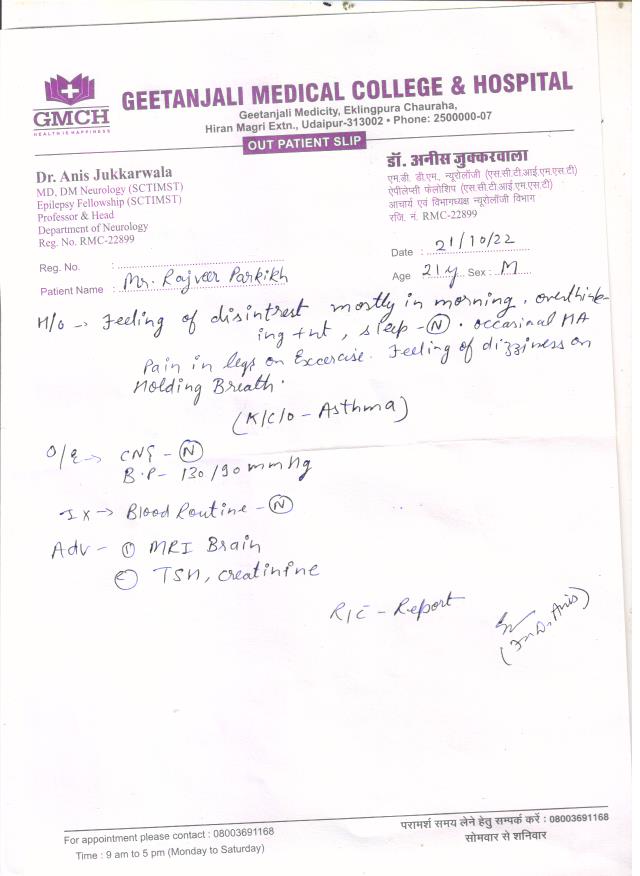 GMCH
HEALTH IS HAPPINESS
GEETANJALI MEDICAL COLLEGE & HOSPITAL
Geetanjali Medicity, Eklingpura Chauraha,
Hiran Magri Extn., Udaipur-313002 • Phone: 2500000-07
OUT PATIENT SLIP
Dr. Anis Jukkarwala
MD, DM Neurology (SCTIMST)
Epilepsy Fellowship (SCTIMST)
Professor & Head
Department of Neurology
Reg. No. RMC-22899
डॉ. अनीस जुक्करवाला
एम.डी. डी.एम., न्यूरोलॉजी (एस.सी.टी.आई.एम.एस.टी)
ऐपीलेप्सी फेलोशिप (एस.सी.टी.आई.एम.एस.टी)
आचार्य एवं विभागध्यक्ष न्यूरोलॉजी विभाग
रजि. नं. RMC-22899
Reg. No. :
Date : 21/10/22
Patient Name : Mr. Rajveer Parkikh
Age 21y Sex : M
H/o → Feeling of disintrest mostly in morning. overthink-
ing +nt, sleep - N. occasinal HA
Pain in legs on Excercise. Feeling of dizziness on
Holding Breath.
(K/C/O - Asthma)
O/E → CNS - N
B.P- 130/90 mmHg
Ix → Blood Routine - N
Adv - ① MRI Brain
② TSH, creatinine
R/c - Report
(Dr. Anis)
For appointment please contact : 08003691168
Time : 9 am to 5 pm (Monday to Saturday)
परामर्श समय लेने हेतु सम्पर्क करें : 08003691168
सोमवार से शनिवार